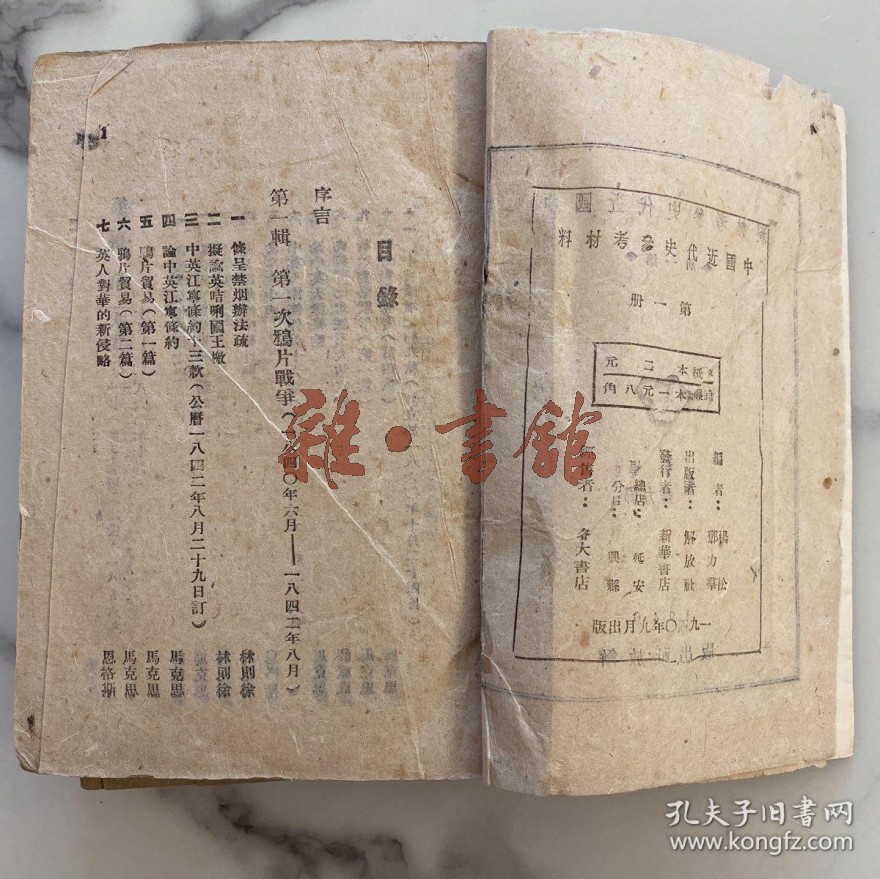 中國近代史參考材料
第一冊
本二元
本一元八角
編者：楊松
鄧力羣
出版者：解放社
發行者：新華書店
總店：延安
分店：興縣
者：各大書店
一九四〇年九月出版
目錄
序言
第一輯　第一次鴉片戰爭（一八四〇年六月——一八四二年八月）
一　條呈禁烟辦法疏　林則徐
二　擬諭英咭唎國王檄　林則徐
三　中英江寧條約十三款（公曆一八四二年八月二十九日訂）
四　論中英江寧條約　馬克思
五　鴉片貿易（第一篇）　馬克思
六　鴉片貿易（第二篇）　馬克思
七　英人對華的新侵略　恩格斯
1
雜·書館
孔夫子旧书网
www.kongfz.com